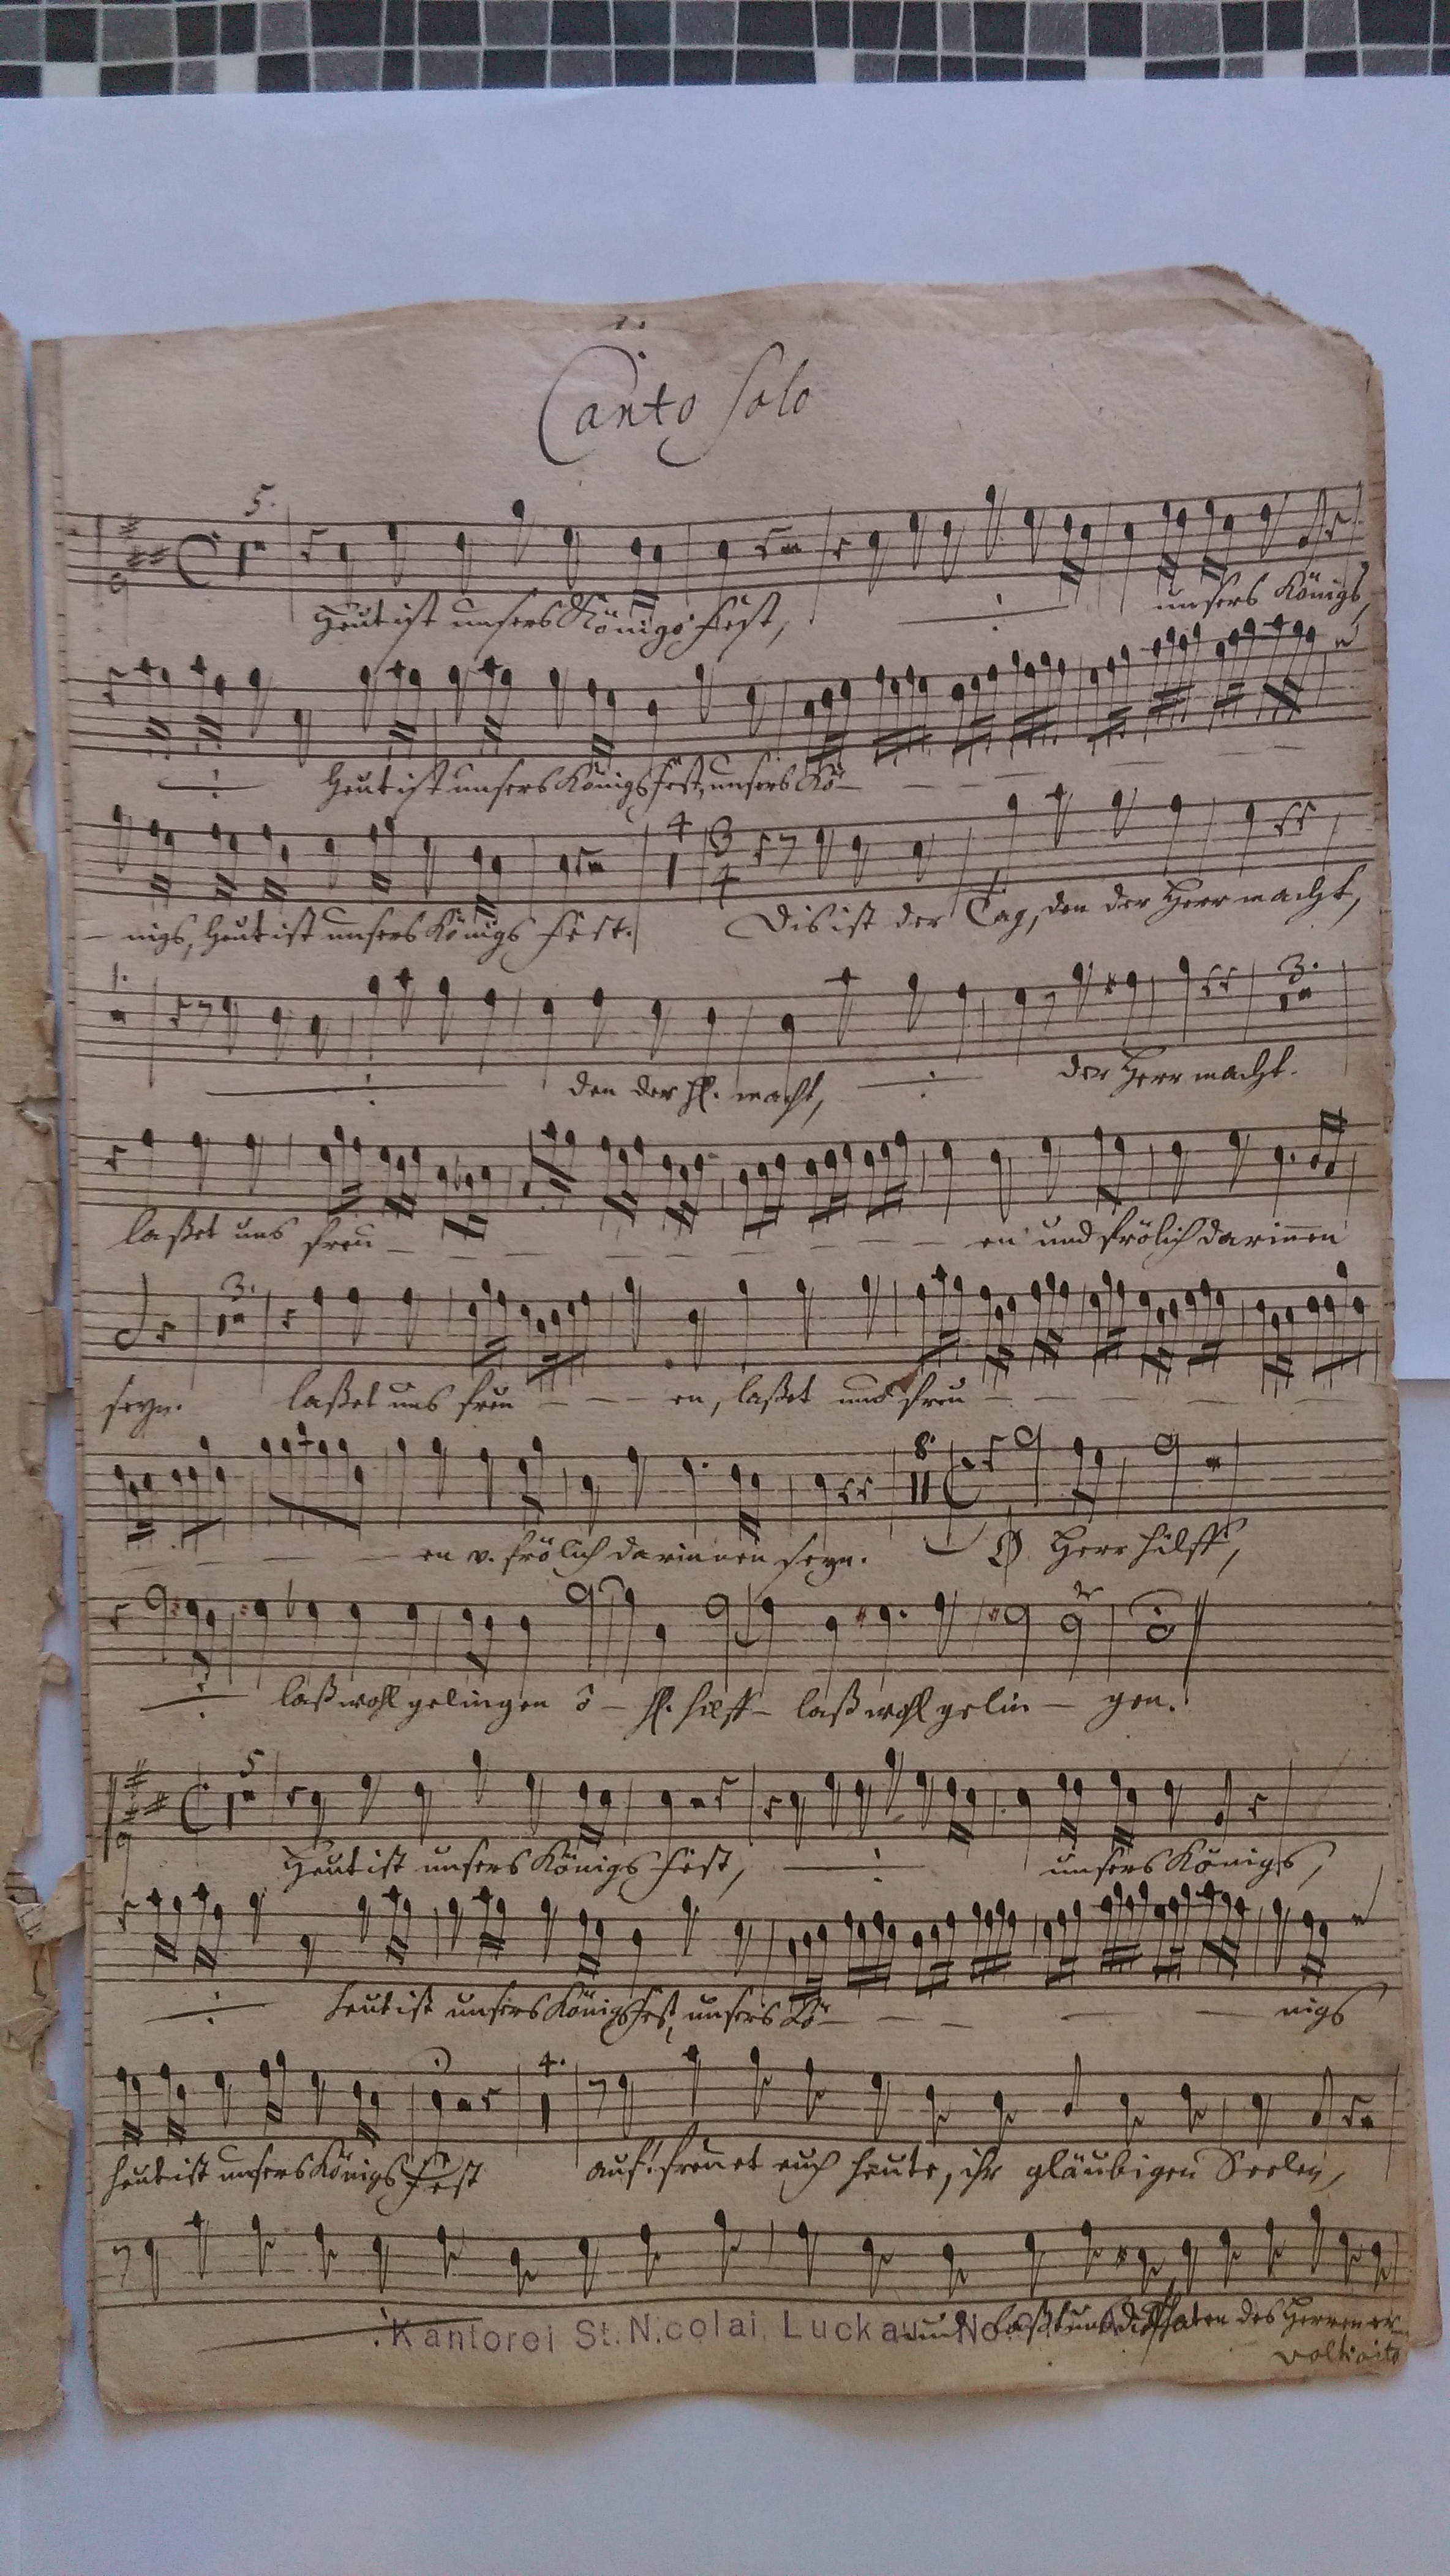 Canto Solo
5.
Heut ist unsers Königs Fest, unsers Königs,
Heut ist unsers Königs Fest, unsers Kö-
4 3 4
nigs, Heut ist unsers Königs Fest. Dis ist der Tag, den der Herr macht,
1. 3.
den der H. macht, der Herr macht.
laßet uns freu - en und frölich darinnen
3.
seyn. laßet uns freu - en, laßet uns freu -
8
en v. frölich darinnen seyn. O Herr hilff,
laß wohl gelingen ô - H. hilff - laß wohl gelin - gen.
5
Heut ist unsers Königs Fest, unsers Königs,
heut ist unsers Königs Fest, unsers Kö - nigs
4.
heut ist unsers Königs Fest auf! freuet euch heute, ihr gläubigen Seelen,
Kantorei St. Nicolai Luckau No
laßt uns die Thaten des Herren er-
volti cito